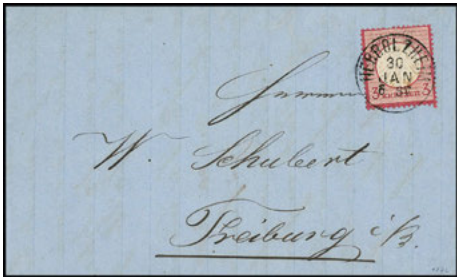 HERBOLZHEIM
30
JAN
3 KREUZER 3
W. Schubert
Freiburg i/B.